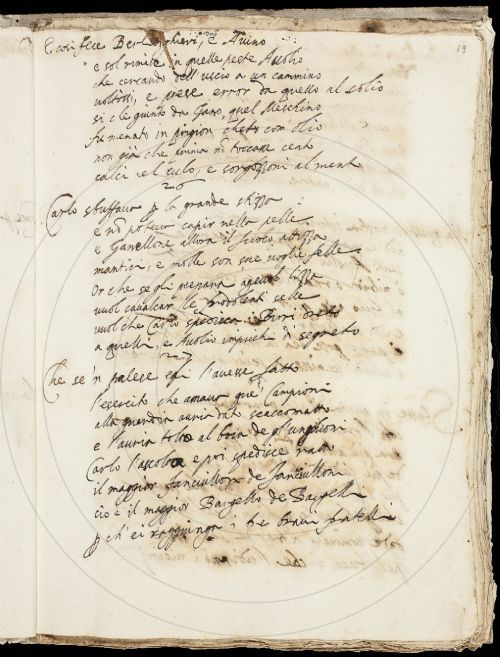 19
E così fece Berlinghieri, e Avino
e sol rimase in quelle peste Avolio
che cercando dell'uscio a un cammino
voltossi, e prese error da quello al solio
si che giunto da Gano, quel Meschino
fu menato in prigion cheto com olio
non già che prima nō toccasse cento
calci nel culo, e sorgozzoni al mento
26
Carlo sbuffava p la grande stizza
e nō poteva capir nella pelle
e Ganellone allora il fuoco attizza
mantica, e molle son sue voglie felle
Or che se gli menava agevol lizza
vuol cavalcar le
vuol che Carlo spedisca Birri dreto
a quelli, e Avolio impicchi di segreto
27
Che se 'n palese egli l'avesse fatto
l'esercito che amava que' Campioni
alla guardia avria dato scaccomatto
e l'avria tolto al boia de gl'unghioni
Carlo l'ascolta e poi spedisce ratto
il maggior fanciullon de fanciulloni
cio è il maggior Bargello de Bargelli
p ch' ei raggiunga i tre bravi fratelli